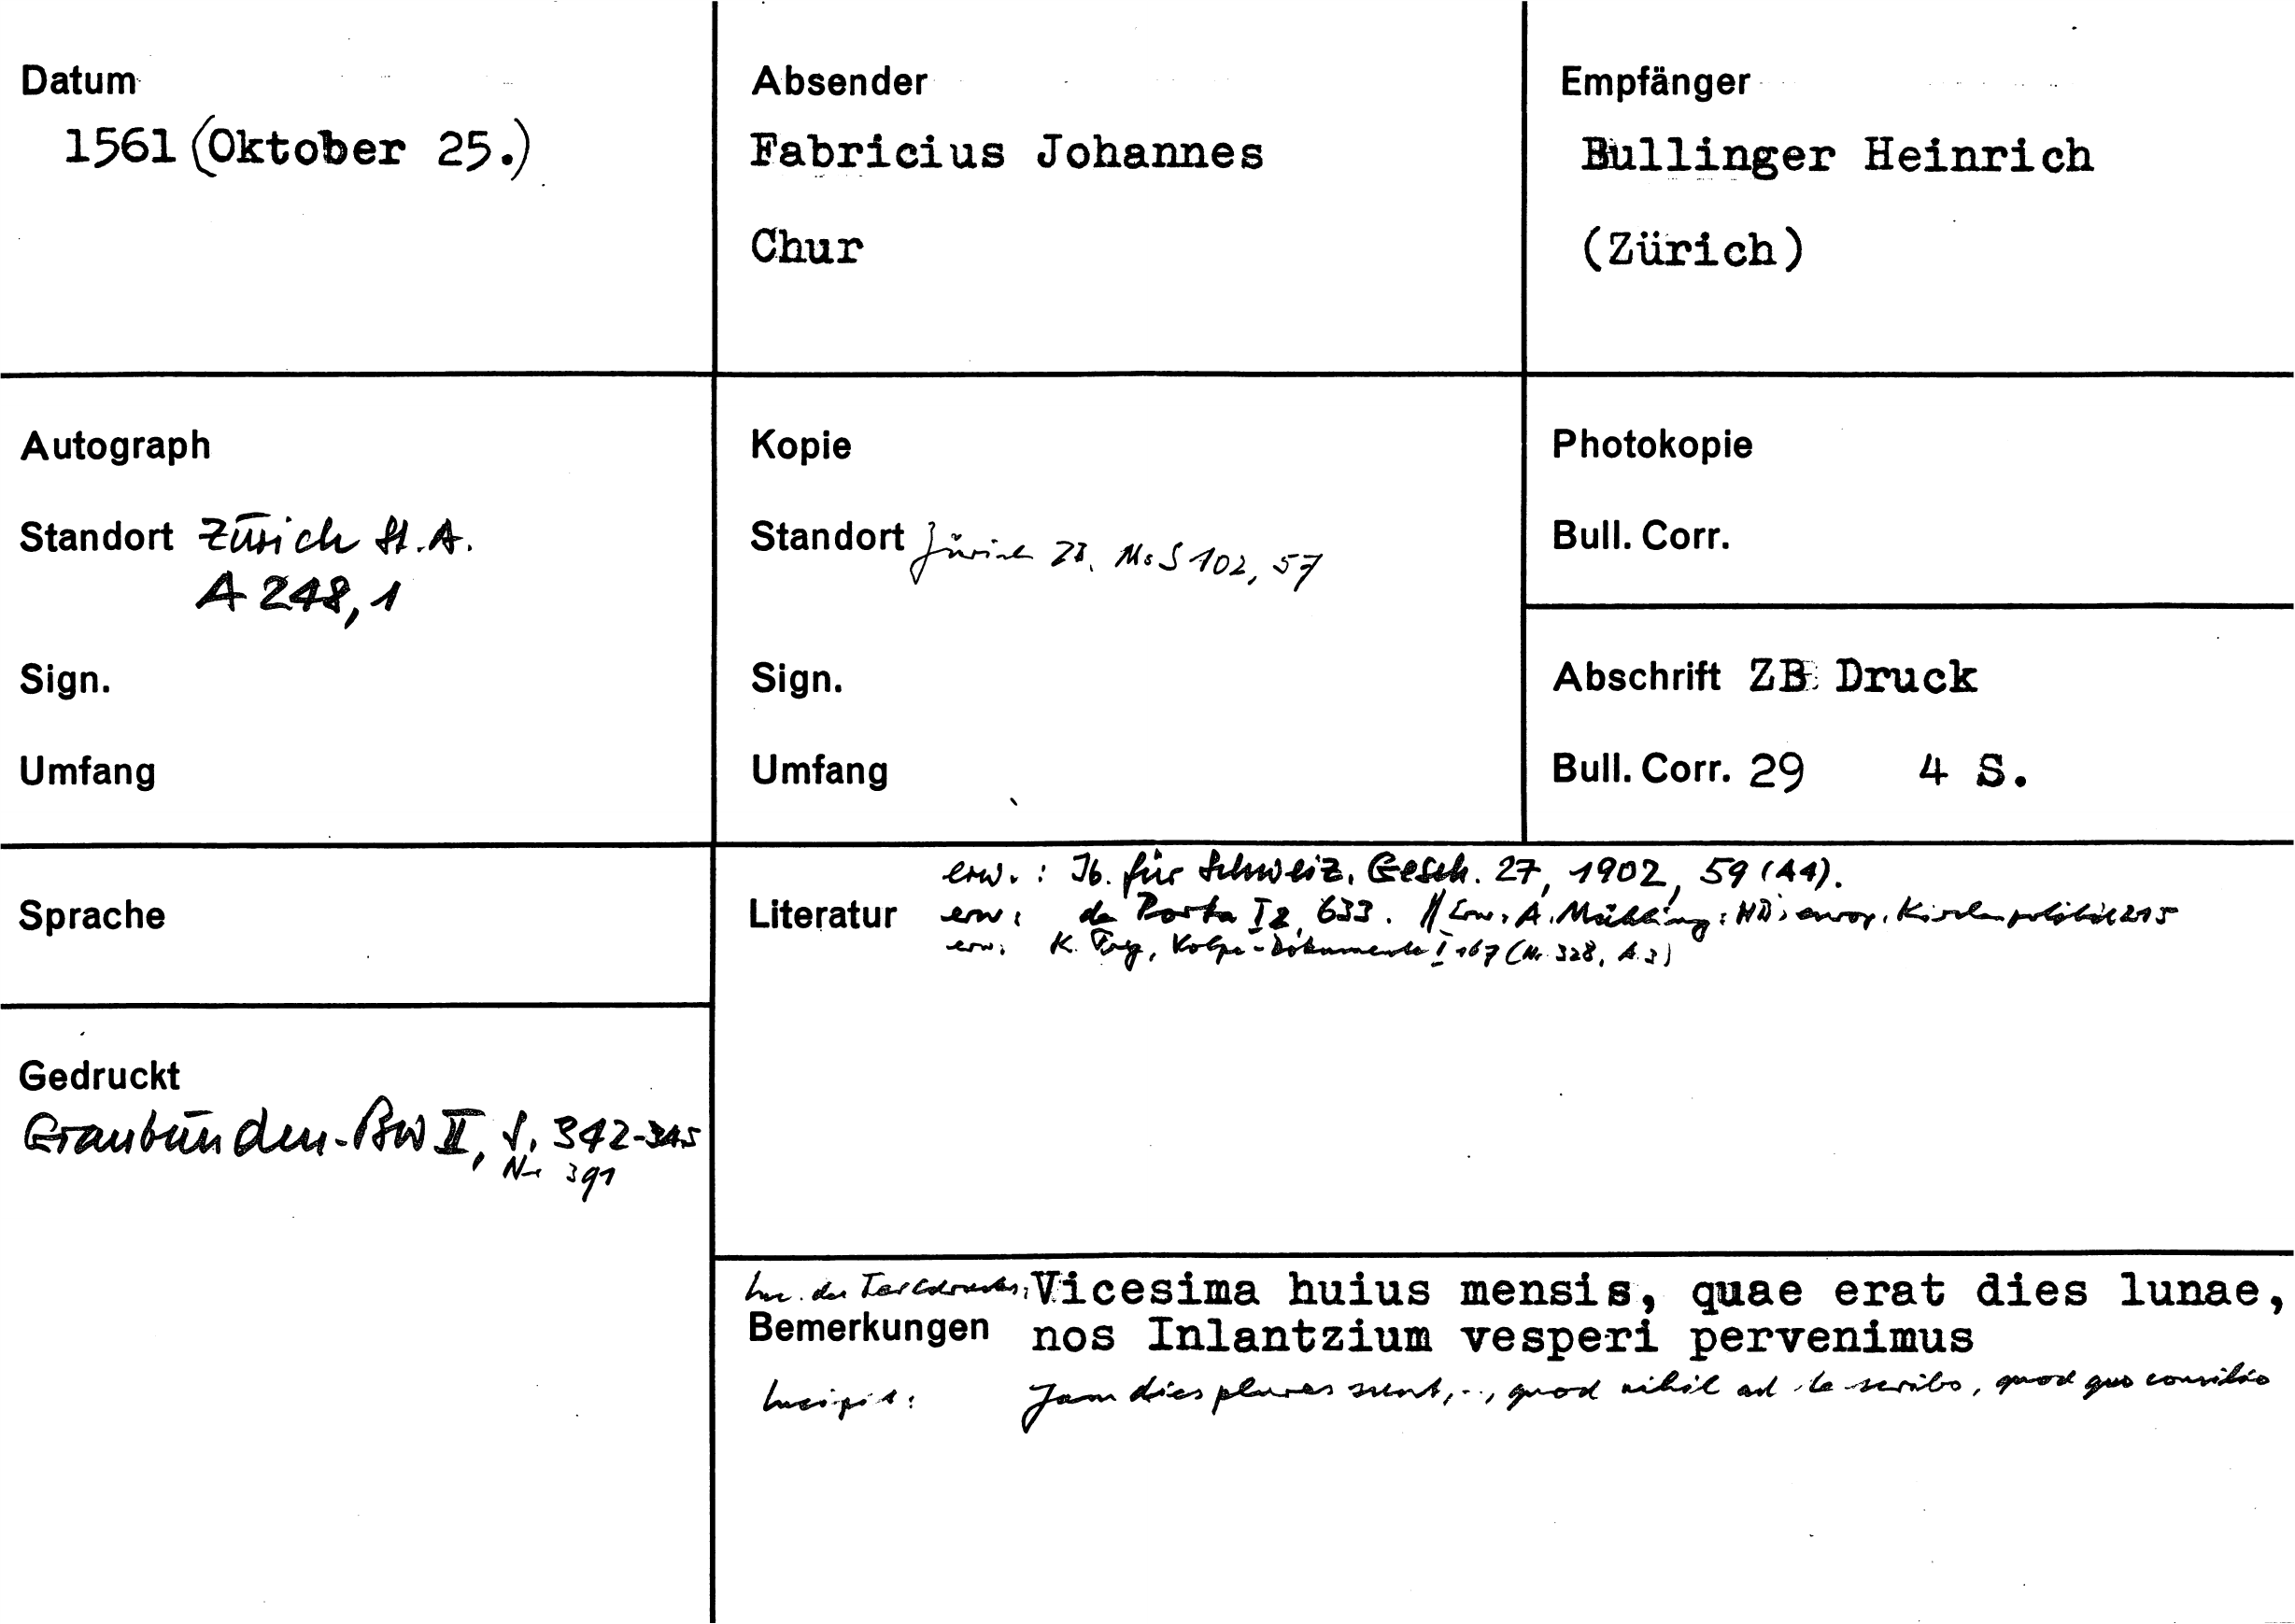 Datum
1561 (Oktober 25.)
Absender
Fabricius Johannes
Chur
Empfänger
Bullinger Heinrich
(Zürich)
Autograph
Standort Zürich St.A.
A 248, 1
Sign.
Umfang
Kopie
Standort Zürich ZB, Ms S 102, 57
Sign.
Umfang
Photokopie
Bull. Corr.
Abschrift ZB Druck
Bull. Corr. 29 4 S.
Sprache
Gedruckt
Graubünden-BW II, S. 342-345
Nr 391
erw.: Jb. für Schweiz. Gesch. 27, 1902, 59 (A1).
Literatur erw: da Porta I 2, 633. // Erw. A. Mühling: europ. Kirchenpolitik 215
erw: K. Volpe-Dokumente I 167 (Nr. 328, A. 3)
Inc. des Vicesima huius mensis, quae erat dies lunae,
Bemerkungen nos Inlantzium vesperi pervenimus
Incipit: Jam dies plures sunt, .., quod nihil ad te scribo, quod quo consilio